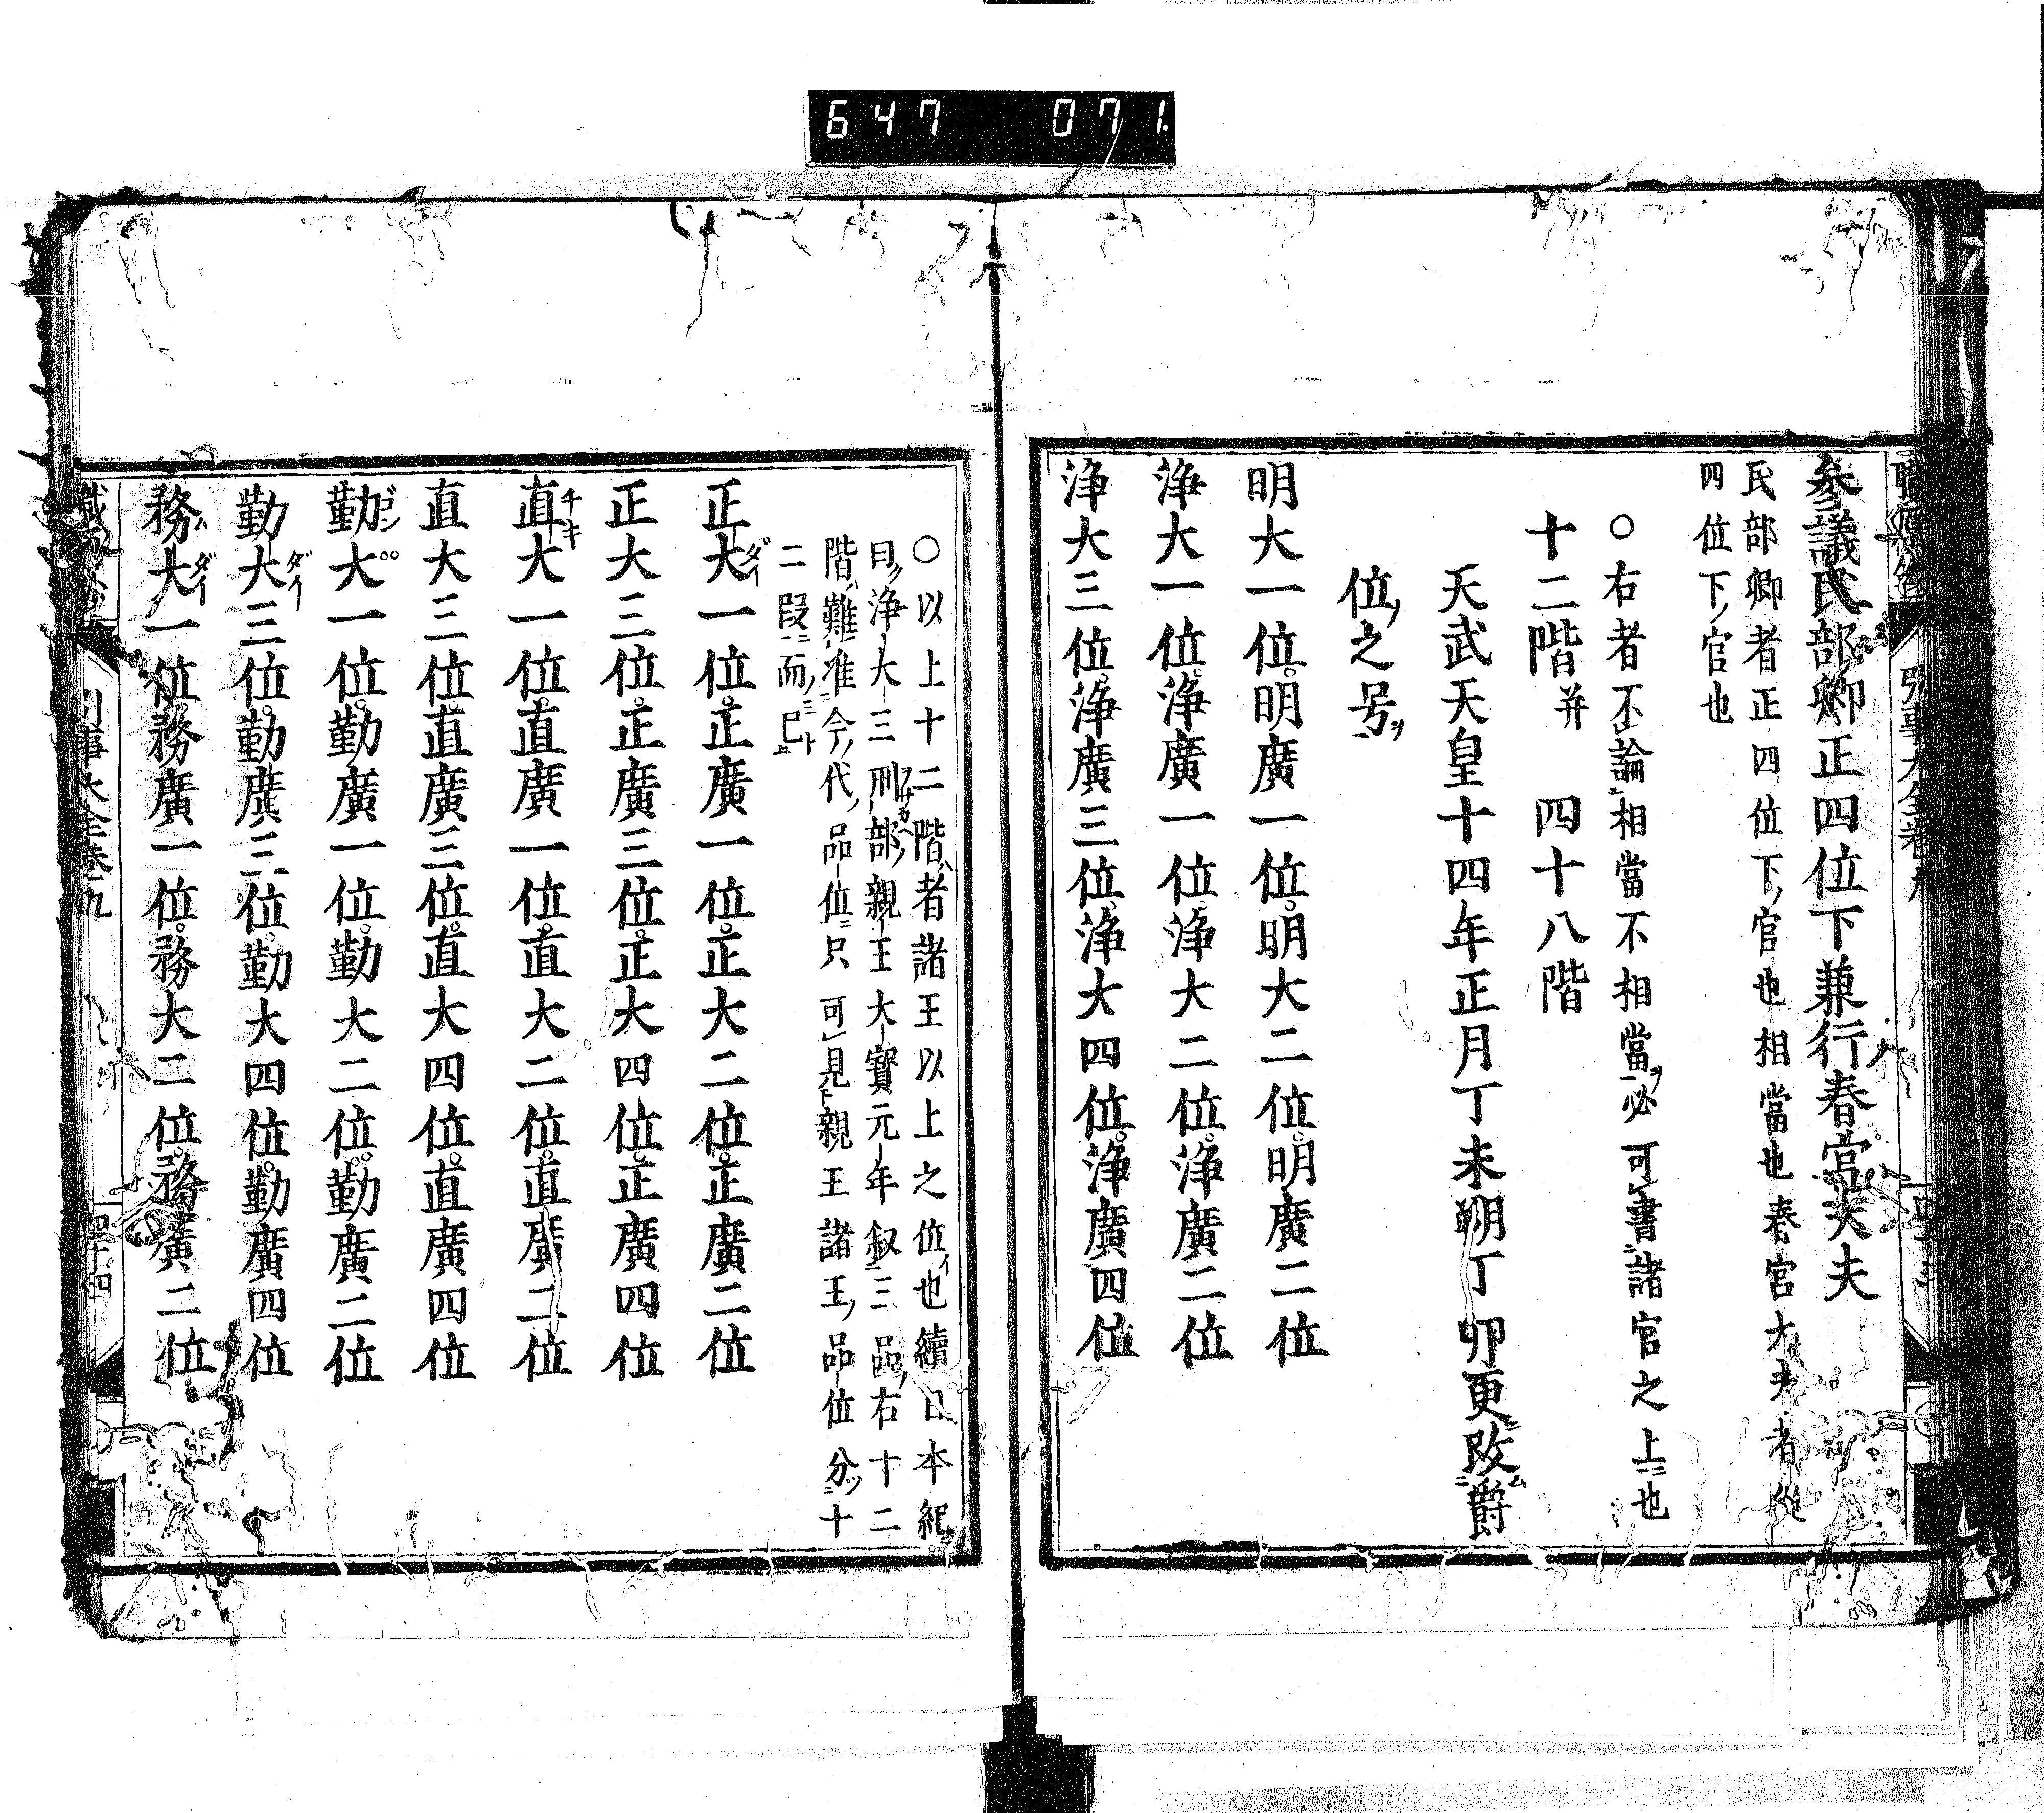 647 071
参議民部卿正四位下兼行春宮大夫
民部卿者正四位下ノ官也相當也春宮大夫者從
四位下ノ官也
○右者不論相當不相當ヲ必可書諸官之上ニ也
十二階并 四十八階
天武天皇十四年正月丁未朔丁卯更改爵
位之号ヲ
明大一位明廣一位明大二位明廣二位
浄大一位浄廣一位浄大二位浄廣二位
浄大三位浄廣三位浄大四位浄廣四位
○以上十二階ハ者諸王以上之位也續日本紀
曰浄大三刑部親王大寳元年叙三品右十二
階ハ難准今ノ代ノ品位ニ只可見親王諸王ノ品位分ツ十
二段ニ而已
正大一位正廣一位正大二位正廣二位
正大三位正廣三位正大四位正廣四位
直大一位直廣一位直大二位直廣二位
直大三位直廣三位直大四位直廣四位
勤大一位勤廣一位勤大二位勤廣二位
勤大三位勤廣三位勤大四位勤廣四位
務大一位務廣一位務大二位務廣二位
引事大全巻九